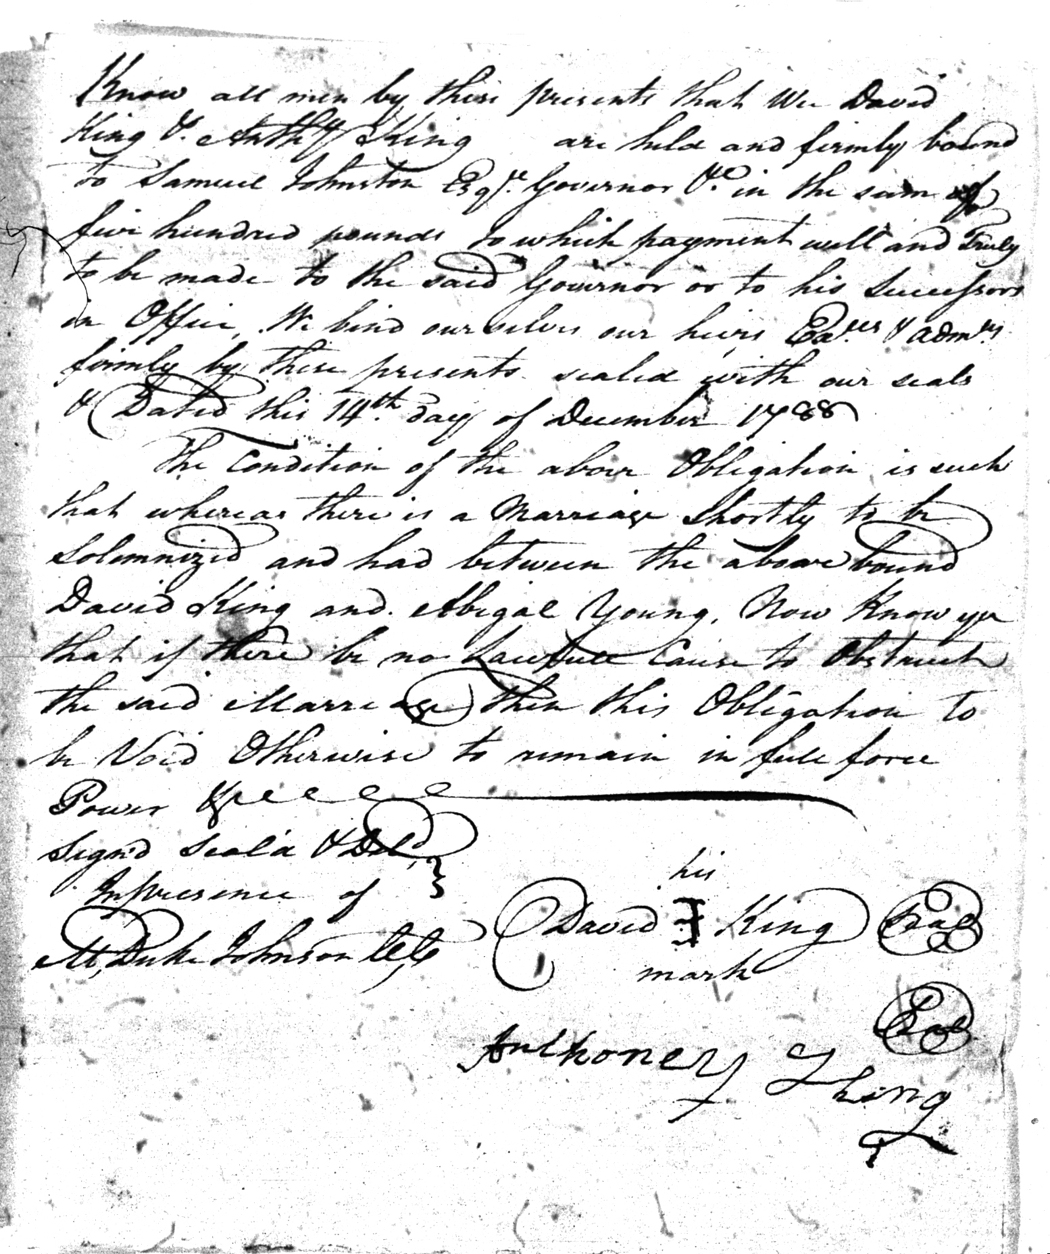 Know all men by these presents that We David
King & Anthy King are held and firmly bound
to Samuel Johnston Esqr. Governor &c. in the sum of
five hundred pounds to which payment well and Truly
to be made to the said Governor or to his Successors
in Office, We bind ourselves our heirs Exrs. & admrs
firmly by these presents sealed with our seals
& Dated this 14th day of December 1788
The Condition of the above Obligation is such
that whereas there is a Marriage Shortly to be
Solemnized and had between the above bound
David King and Abigal Young, Now Know ye
that if there be no Lawfull Cause to Obstruct
the said Marriage then this Obligation to
be Void Otherwise to remain in full force
Power &c
Sign'd Seal'd & Deld.
In presence of
M, Duke Johnson
his
David King Seal
mark
Seal
Anthoney King